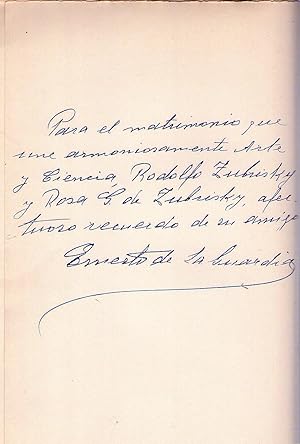 Para el matrimonio que
une armoniosamente Arte
y Ciencia Rodolfo Zubrisky
y Rosa G. de Zubrisky, afec-
tuoso recuerdo de su amigo
Ernesto de la Guardia